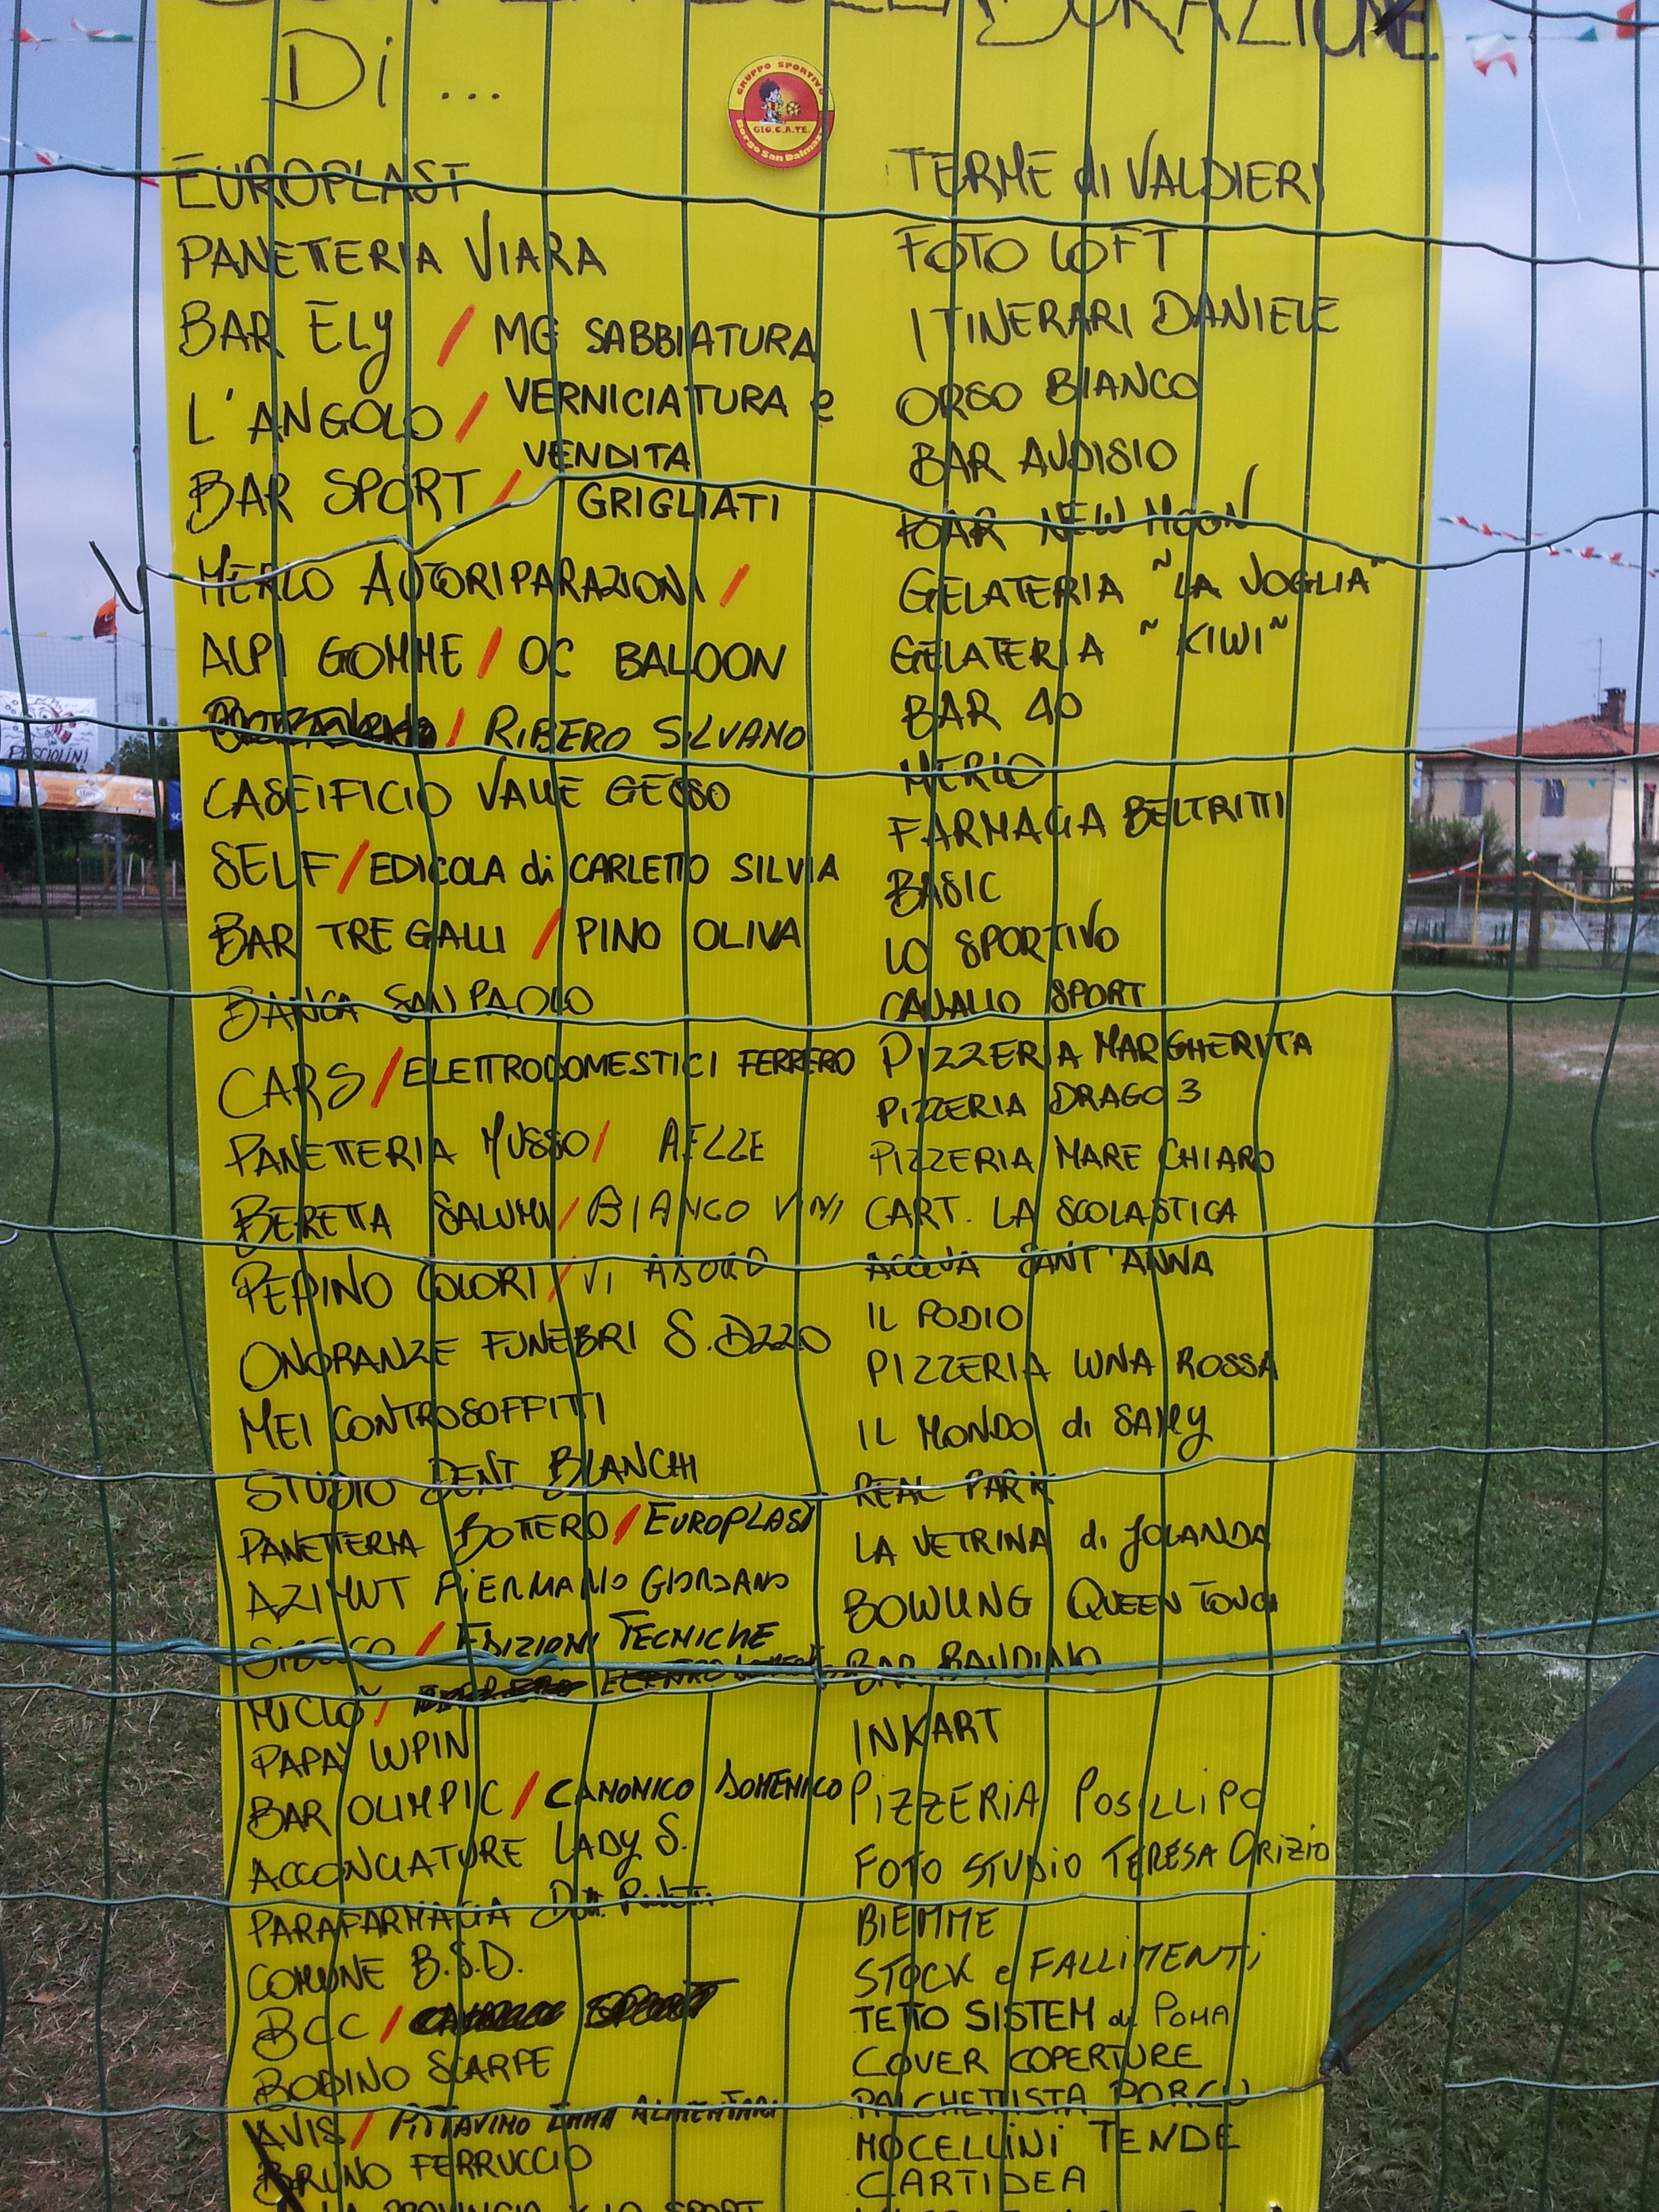 COLLABORAZIONE
Di ...
GRUPPO SPORTIVO
GIO.C.A.TE.
Borgo San Dalmazzo
EUROPLAST
PANETTERIA VIARA
BAR ELY / MG SABBIATURA
L'ANGOLO / VERNICIATURA e
VENDITA
BAR SPORT / GRIGLIATI
MERLO AUTORIPARAZIONI /
ALPI GOMME / OC BALOON
/ RIBERO SILVANO
CASEIFICIO VALLE GESSO
SELF / EDICOLA di CARLETTO SILVIA
BAR TRE GALLI / PINO OLIVA
BANCA SAN PAOLO
CARS / ELETTRODOMESTICI FERRERO
PANETTERIA MUSSO / AELLE
BERETTA SALUMI / BIANCO VINI
PEPINO COLORI / VI
ONORANZE FUNEBRI S.
MEI CONTROSOFFITTI
STUDIO DENT BIANCHI
PANETTERIA BOTTERO / EUROPLAST
AZIMUT PIERMARIO GIORDANO
/ EDIZIONI TECNICHE
MICLO' /
PAPAY LUPIN
BAR OLIMPIC / CANONICO DOMENICO
ACCONCIATURE LADY S.
PARAFARMACIA Dott.
COMUNE B.S.D.
BCC /
BODINO SCARPE
AVIS / PITTAVINO IRMA ALIMENTARI
BRUNO FERRUCCIO
LA PROVINCIA LO SPORT
TERME di VALDIERI
FOTO LOFT
ITINERARI DANIELE
ORSO BIANCO
BAR AUDISIO
BAR NEW MOON
GELATERIA "LA VOGLIA"
GELATERIA "KIWI"
BAR 40
MERLO
FARMACIA BELTRITTI
BASIC
LO SPORTIVO
CAVALLO SPORT
PIZZERIA MARGHERITA
PIZZERIA DRAGO 3
PIZZERIA MARE CHIARO
CART. LA SCOLASTICA
ACQUA SANT'ANNA
IL PODIO
PIZZERIA LUNA ROSSA
IL MONDO di SAMY
REAL PARK
LA VETRINA di JOLANDA
BOWLING QUEEN
BAR BANDINO
INKART
PIZZERIA POSILLIPO
FOTO STUDIO TERESA Orizio
BIEMME
STOCK e FALLIMENTI
TETTO SISTEM di POMA
COVER COPERTURE
PALCHETTISTA PORCU
MOCELLINI TENDE
CARTIDEA
PESCIOLINI